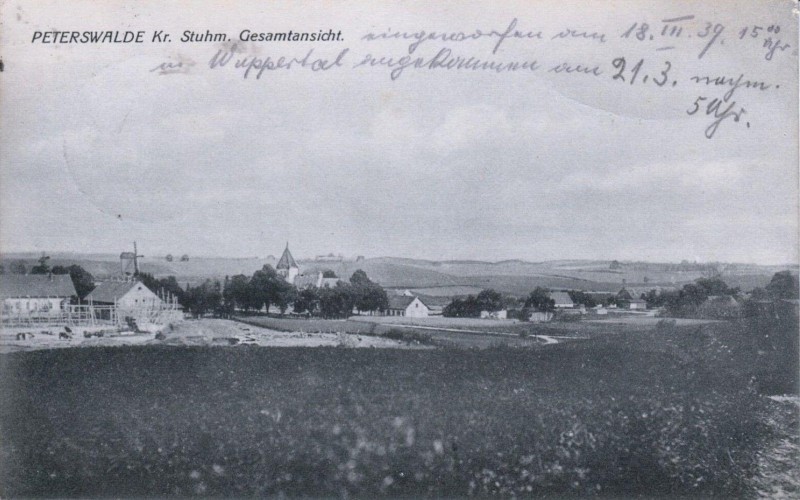 PETERSWALDE Kr. Stuhm. Gesamtansicht.
eingeworfen am 18. III. 39. 15⁰⁰ Uhr
in Wuppertal angekommen am 21.3. nachm.
5 Uhr.